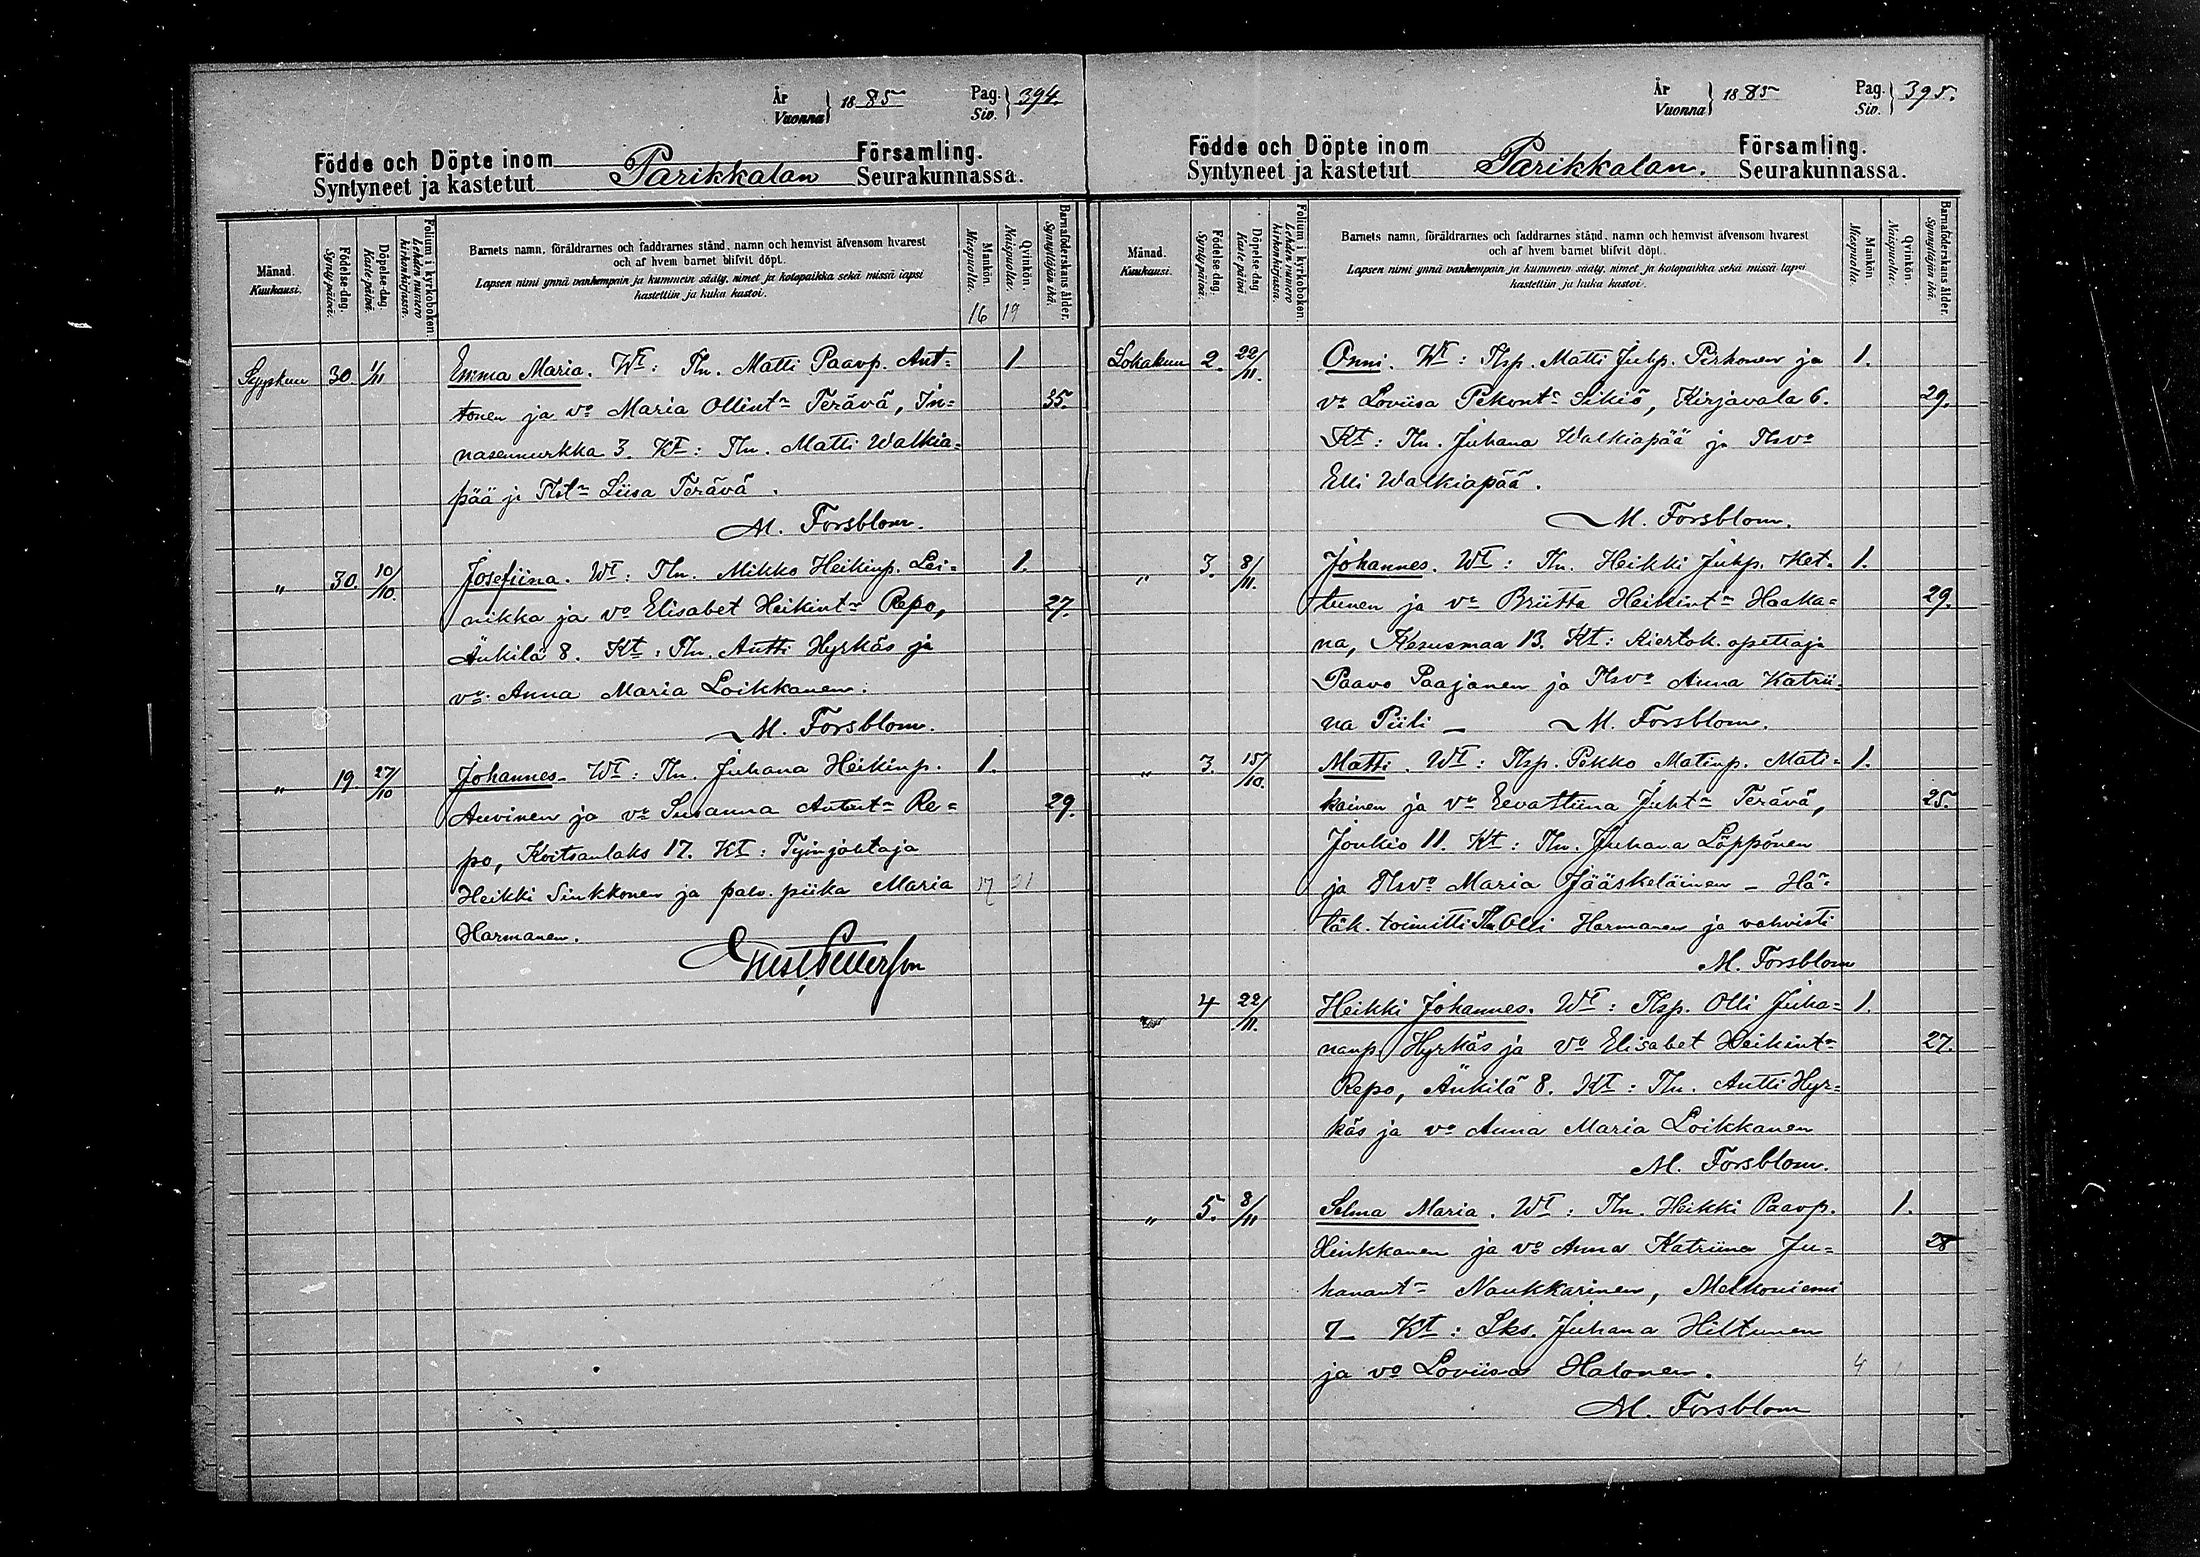 År
Vuonna } 1885 Pag.
Siv. } 394.
Födde och Döpte inom Parikkalan Församling.
Syntyneet ja kastetut Seurakunnassa.
Månad.
Kuukausi.
Födelse-dag.
Syntypäivä.
Döpelse-dag
Kastepäivä.
Folium i kyrkoboken.
Lehden numero
kirkonkirjassa.
Barnets namn, föräldrarnes och faddrarnes stånd, namn och hemvist äfvensom hvarest
och af hvem barnet blifvit döpt.
Lapsen nimi ynnä vanhempain ja kummein sääty, nimet ja kotopaikka sekä missä lapsi
kastettiin ja kuka kastoi.
Mankön.
Miespuolia.
Qvinkön.
Naispuolia.
Barnaföderskans ålder.
Synnyttäjän ikä.
16 19
Syyskuu 30. 1/11 Emma Maria. Wt: Tln. Matti Paavp. Ant- 1
tonen ja vo Maria Ollintr Terävä, In- 35.
nasennurkka 3. Kt: Tln. Matti Walkia-
pää ja Tlstr Liisa Terävä.
M. Forsblom.
" 30. 10/10. Josefiina. Wt: Tln. Mikko Heikinp. Lei- 1.
nikka ja vo Elisabet Heikintr Repo, 27.
Änkilä 8. Kt: Tln. Antti Hyrkäs ja
vo Anna Maria Loikkanen.
M. Forsblom.
" 19. 27/10 Johannes- Wt: Tln. Juhana Heikinp. 1.
Auvinen ja vo Susanna Antintr Re- 29.
po, Koitsanlaks 17. Kt: Työnjohtaja
Heikki Sinkkonen ja palv. piika Maria 17 21
Harmanen.
År
Vuonna } 1885 Pag.
Siv. } 395.
Födde och Döpte inom Parikkalan. Församling.
Syntyneet ja kastetut Seurakunnassa.
Månad.
Kuukausi.
Födelse-dag.
Syntypäivä.
Döpelse-dag
Kastepäivä
Folium i kyrkoboken.
Lehden numero
kirkonkirjassa.
Barnets namn, föräldrarnes och faddrarnes stånd, namn och hemvist äfvensom hvarest
och af hvem barnet blifvit döpt.
Lapsen nimi ynnä vanhempain ja kummein sääty, nimet ja kotopaikka sekä missä lapsi
kastettiin ja kuka kastoi.
Mankön.
Miespuolia.
Qvinkön.
Naispuolia.
Barnaföderskans ålder.
Synnyttäjän ikä.
Lokakuu 2. 22/11. Onni. Wt: Tlsp. Matti Juhp. Pirhonen ja 1.
vo Loviisa Pekontr Sikiö, Kirjavala 6. 29.
Kt: Tln. Juhana Walkiapää ja Tlsvo
Elli Walkiapää.
M. Forsblom.
" 3. 8/11. Johannes. Wt: Tln. Heikki Juhp. Ket- 1.
tunen ja vo Briitta Heikintr Haaka- 29.
na, Kesusmaa 13. Kt: Kiertok. opettaja
Paavo Paajanen ja Tlsvo Anna Katrii-
na Piili — M. Forsblom.
" 3. 15/10. Matti. Wt: Tlsp. Pekko Matinp. Mati- 1.
kainen ja vo Eevastiina Juhtr Terävä, 25.
Joukio 11. Kt: Tln. Juhana Löppönen
ja Tlsvo Maria Jääskeläinen – Hä-
täk. toimitti Tln Olli Harmanen ja vahvisti
M. Forsblom
" 4 22/11. Heikki Johannes. Wt: Tlsp. Olli Juha- 1.
nanp. Hyrkäs ja vo Elisabet Heikintr 27.
Repo, Änkilä 8. Kt: Tln. Antti Hyr-
käs ja vo Anna Maria Loikkanen
M. Forsblom.
" 5. 8/11 Selma Maria. Wt: Tln. Heikki Paavp. 1.
Hinkkanen ja vo Anna Katriina Ju- 28
hanantr Naukkarinen, Melkoniemi
7– Kt: Lks. Juhana Hiltunen
ja vo Loviisa Halonen. 4 1
M. Forsblom